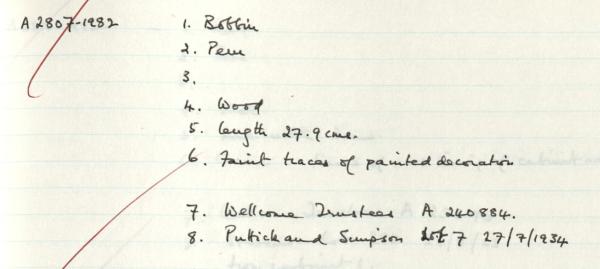 A 2807-1982 1. Bobbin
2. Peru
3.
4. Wood
5. length 27.9 cms.
6. Faint traces of painted decoration
7. Wellcome Trustees A 240884.
8. Puttick and Simpson lot 7 27/7/1934